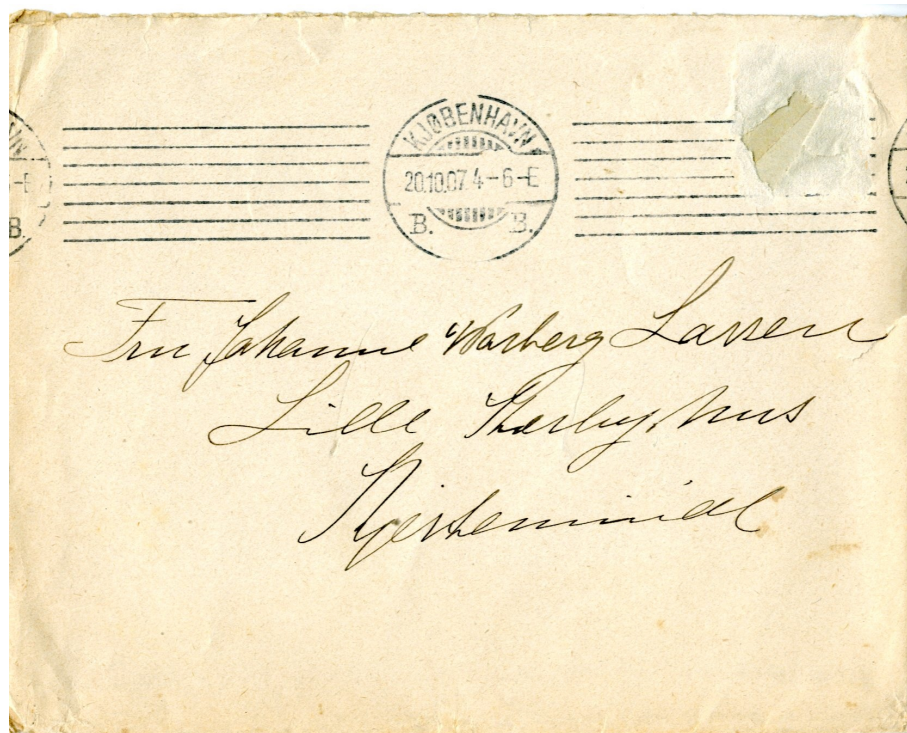 KJØBENHAVN
20.10.07 4-6-E
B. B.
Fru Johanne Warberg Larsen
Lille Kærbyhus
Kjerteminde